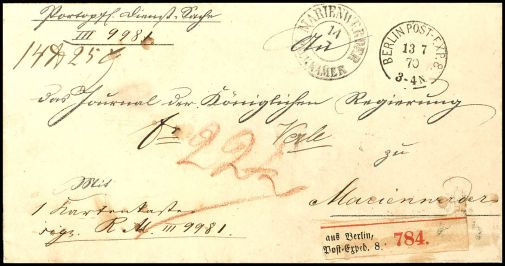 Portopfl. Dienst-Sache
III 9981
14 25
An
MARIENWERDER
14
BERLIN POST-EXP. 8
13 7
70
3-4N
das Journal der Königlichen Regierung
zu
22
Marienwerder
Mit
1 Kartenkasten
sign. R. M. III 9981.
aus Berlin,
Post-Exped. 8.
784.